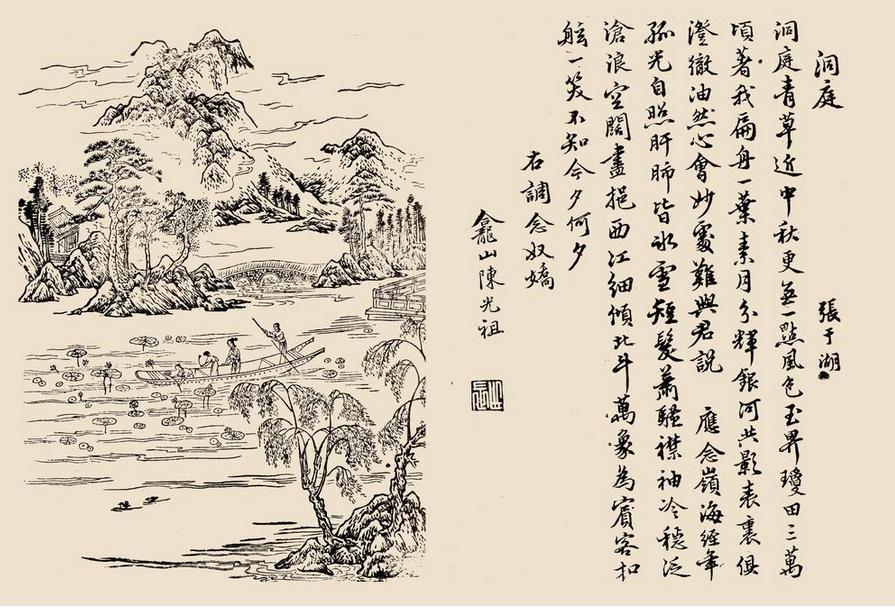 洞庭 張于湖
洞庭青草近中秋更無一點風色玉界瓊田三萬
頃著我扁舟一葉素月分輝銀河共影表裏俱
澄徹油然心會妙處難與君說 應念嶺海經年
孤光自照肝肺皆氷雪短髮蕭騷襟袖冷穩泛
滄浪空闊盡挹西江細傾北斗萬象為賓客扣
舷一笑不知今夕何夕
右調念奴嬌
龕山陳光祖